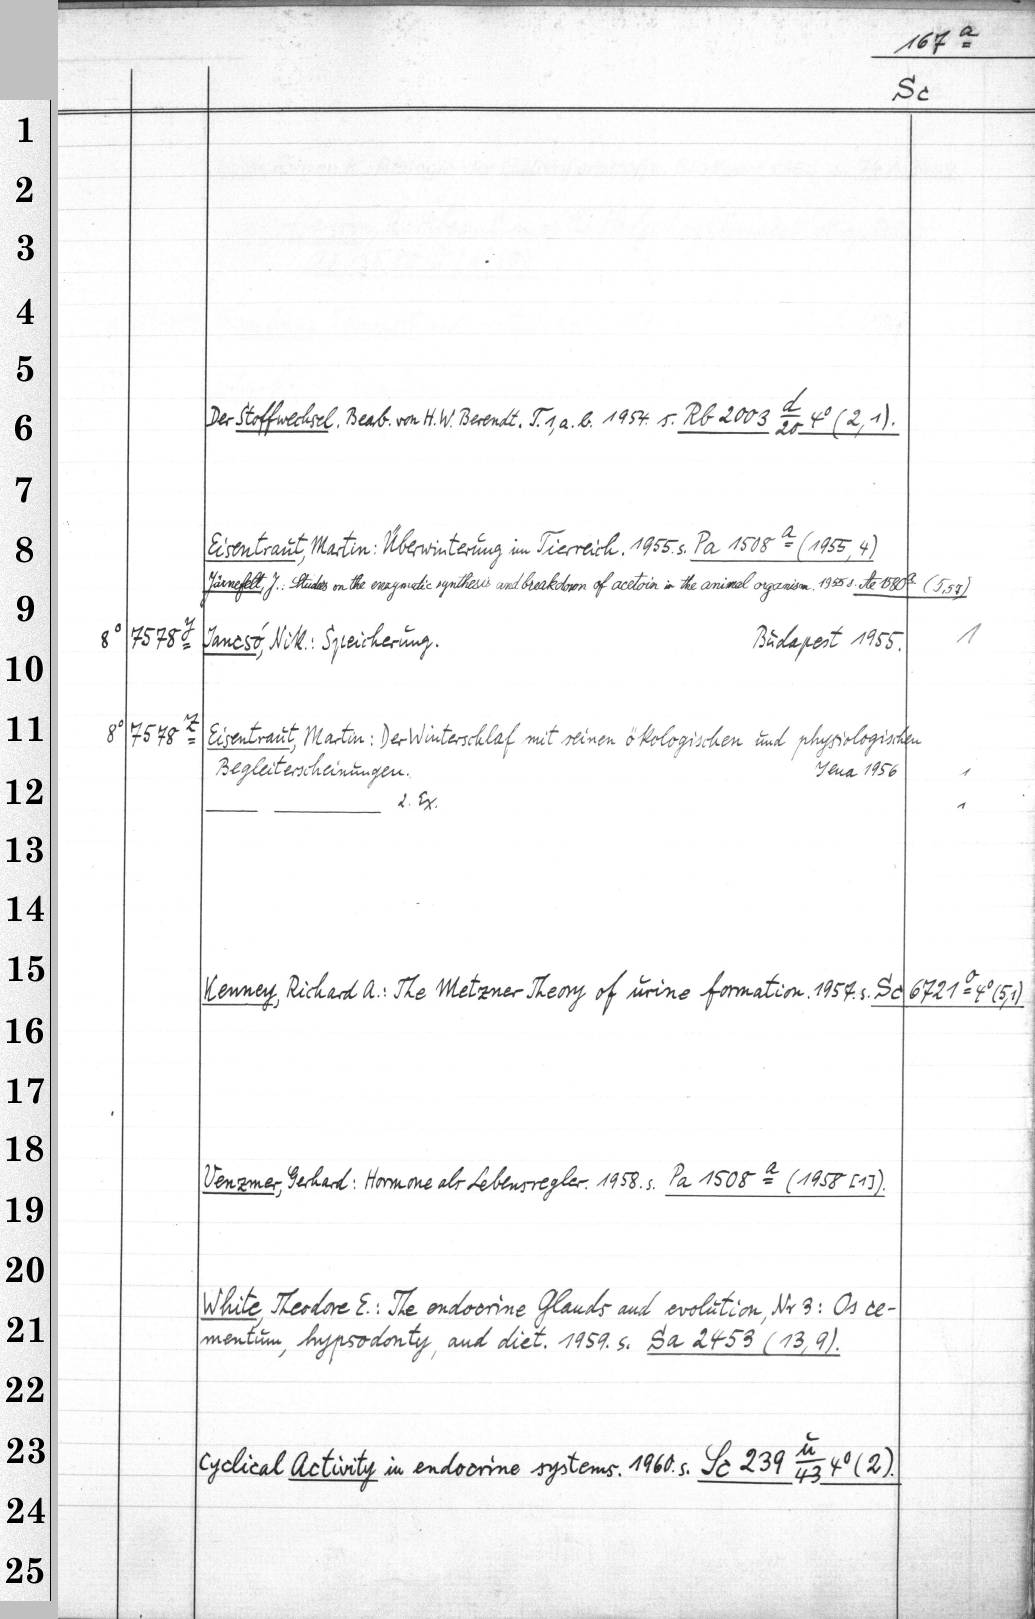 167 a
Sc
1
2
3
4
5
6
Der Stoffwechsel. Bearb. von H. W. Berendt. T. 1, a. b. 1954. s. Rb 2003 d/20 4° (2, 1).
7
8
Eisentraut, Martin: Überwinterung im Tierreich. 1955. s. Pa 1508 a (1955, 4)
Järnefelt, J.: Studies on the enzymatic synthesis and breakdown of acetoin in the animal organism. 1955 s. (5,57)
9
8° 7578 y Jancsó, Nik.: Speicherung. Budapest 1955. 1
10
11
8° 7578 z Eisentraut, Martin: Der Winterschlaf mit seinen ökologischen und physiologischen
Begleiterscheinungen. Jena 1956 1
12
2. Ex. 1
13
14
15
Kenney, Richard A.: The Metzner Theory of urine formation. 1957. s. Sc 6721 o 4° (5,1)
16
17
18
Venzmer, Gerhard: Hormone als Lebensregler. 1958. s. Pa 1508 a (1958 [1]).
19
20
White, Theodore E.: The endocrine Glands and evolution, Nr 3: Os ce-
21
mentum, hypsodonty, and diet. 1959. s. Sa 2453 (13, 9).
22
23
Cyclical Activity in endocrine systems. 1960. s. Sc 239 u/43 4° (2).
24
25